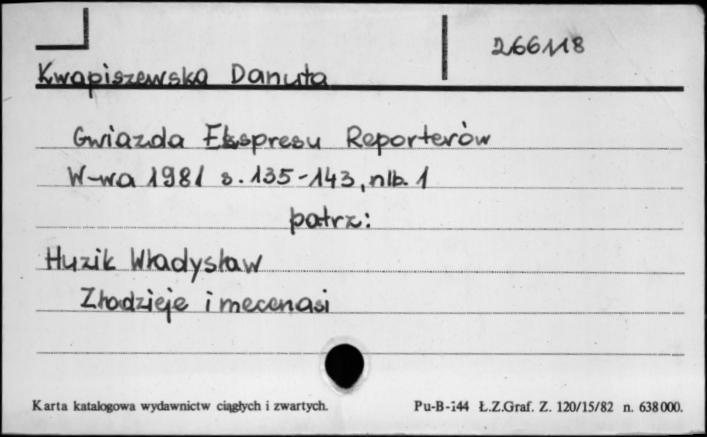 266118
Kwapiszewska Danuta
Gwiazda Ekspresu Reporterów
W-wa 1981 s. 135-143, nlb. 1
patrz:
Huzik Władysław
Złodzieje i mecenasi
Karta katalogowa wydawnictw ciągłych i zwartych. Pu-B-144 Ł.Z.Graf. Z. 120/15/82 n. 638000.